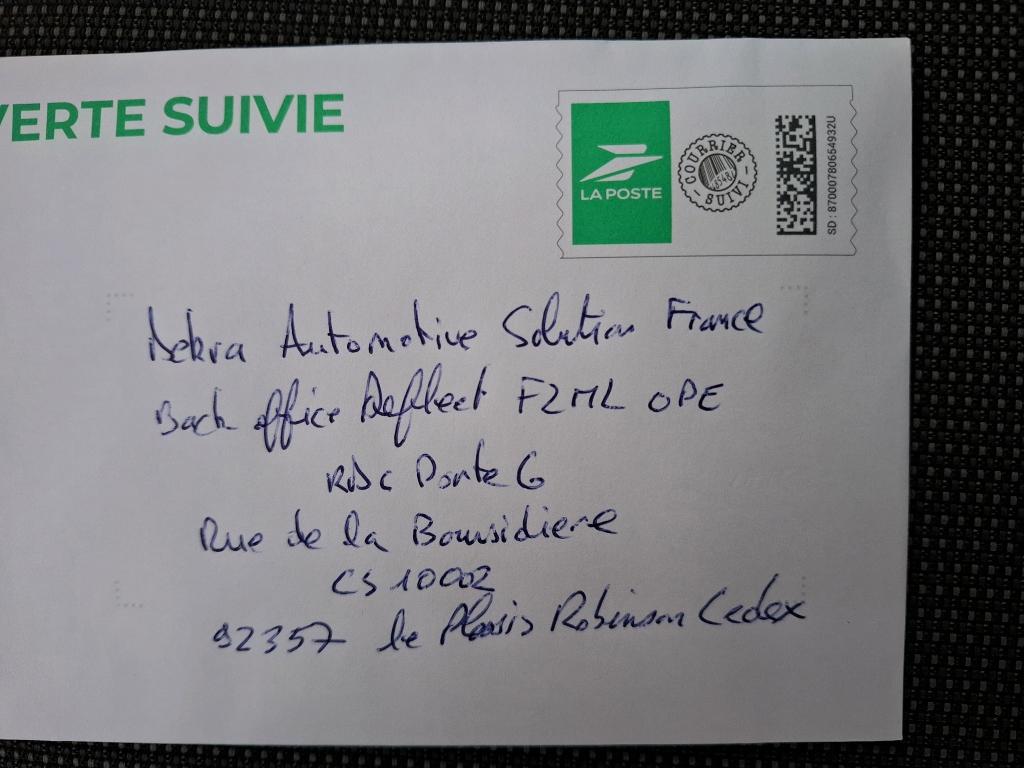 VERTE SUIVIE
LA POSTE
COURRIER
SUIVI
SD : 87000780654932U
Dekra Automotive Solution France
Back office Defleet F2ML OPE
RDC Porte G
Rue de la Boursidiere
CS 10002
92357 le Plessis Robinson Cedex